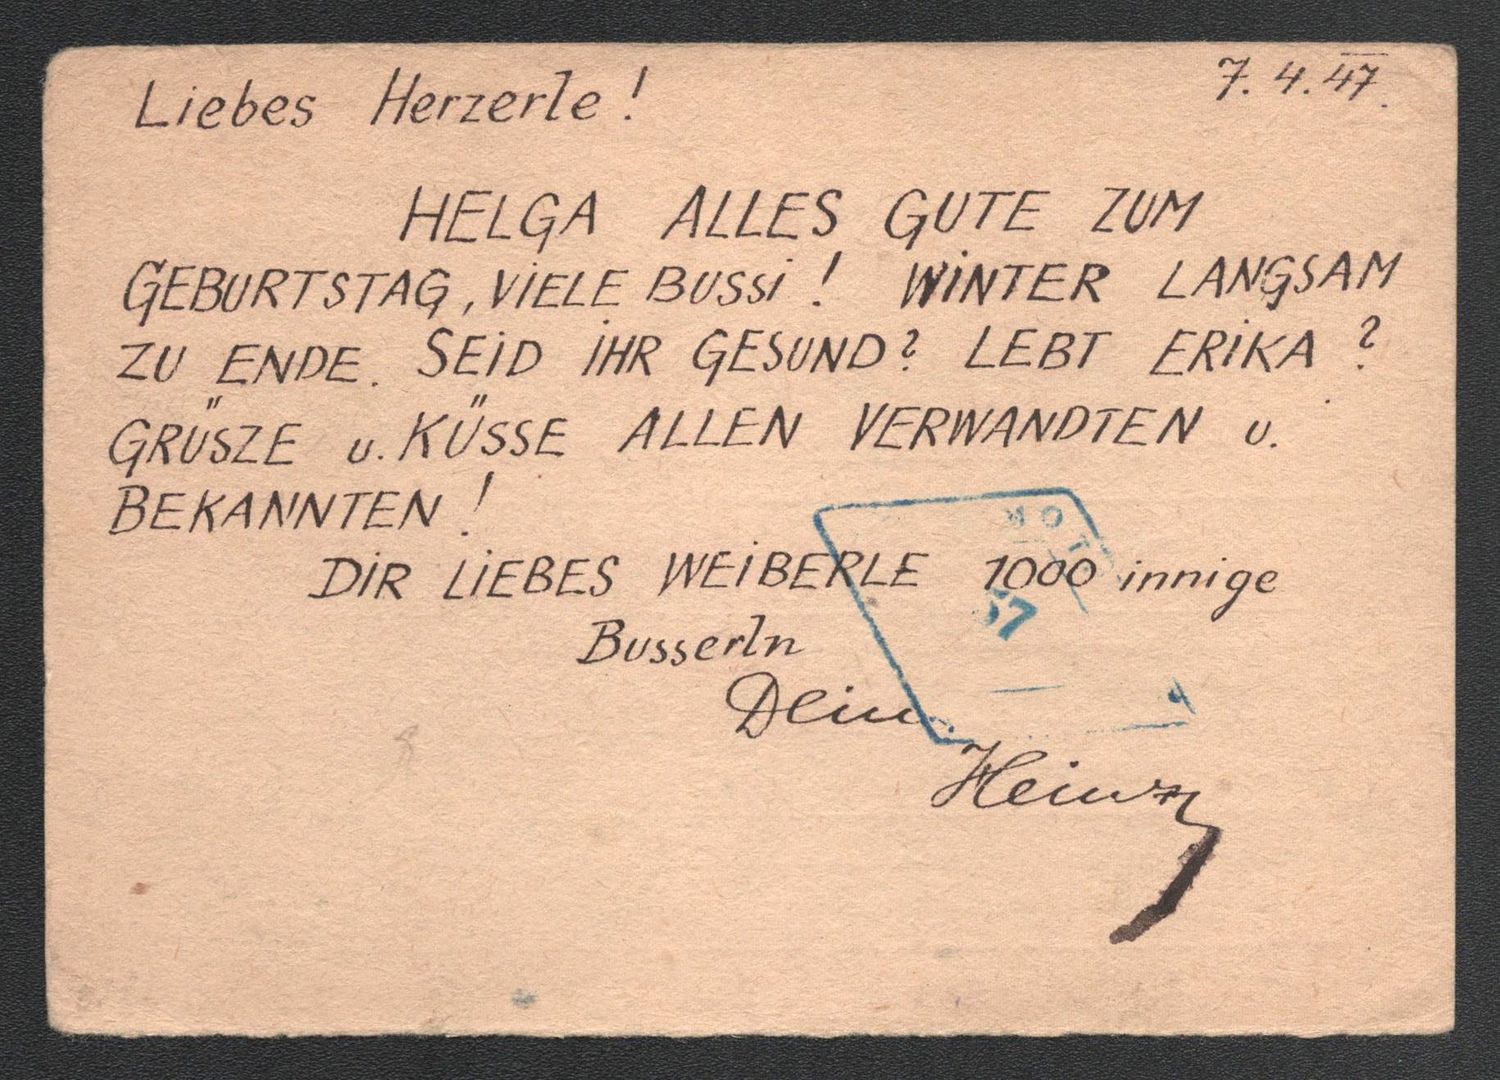 7. 4. 47.
Liebes Herzerle!
HELGA ALLES GUTE ZUM
GEBURTSTAG, VIELE BUSSI! WINTER LANGSAM
ZU ENDE. SEID IHR GESUND? LEBT ERIKA?
GRÜSZE u. KÜSSE ALLEN VERWANDTEN u.
BEKANNTEN!
DIR LIEBES WEIBERLE 1000 innige
Busserln
Dein
Heinz